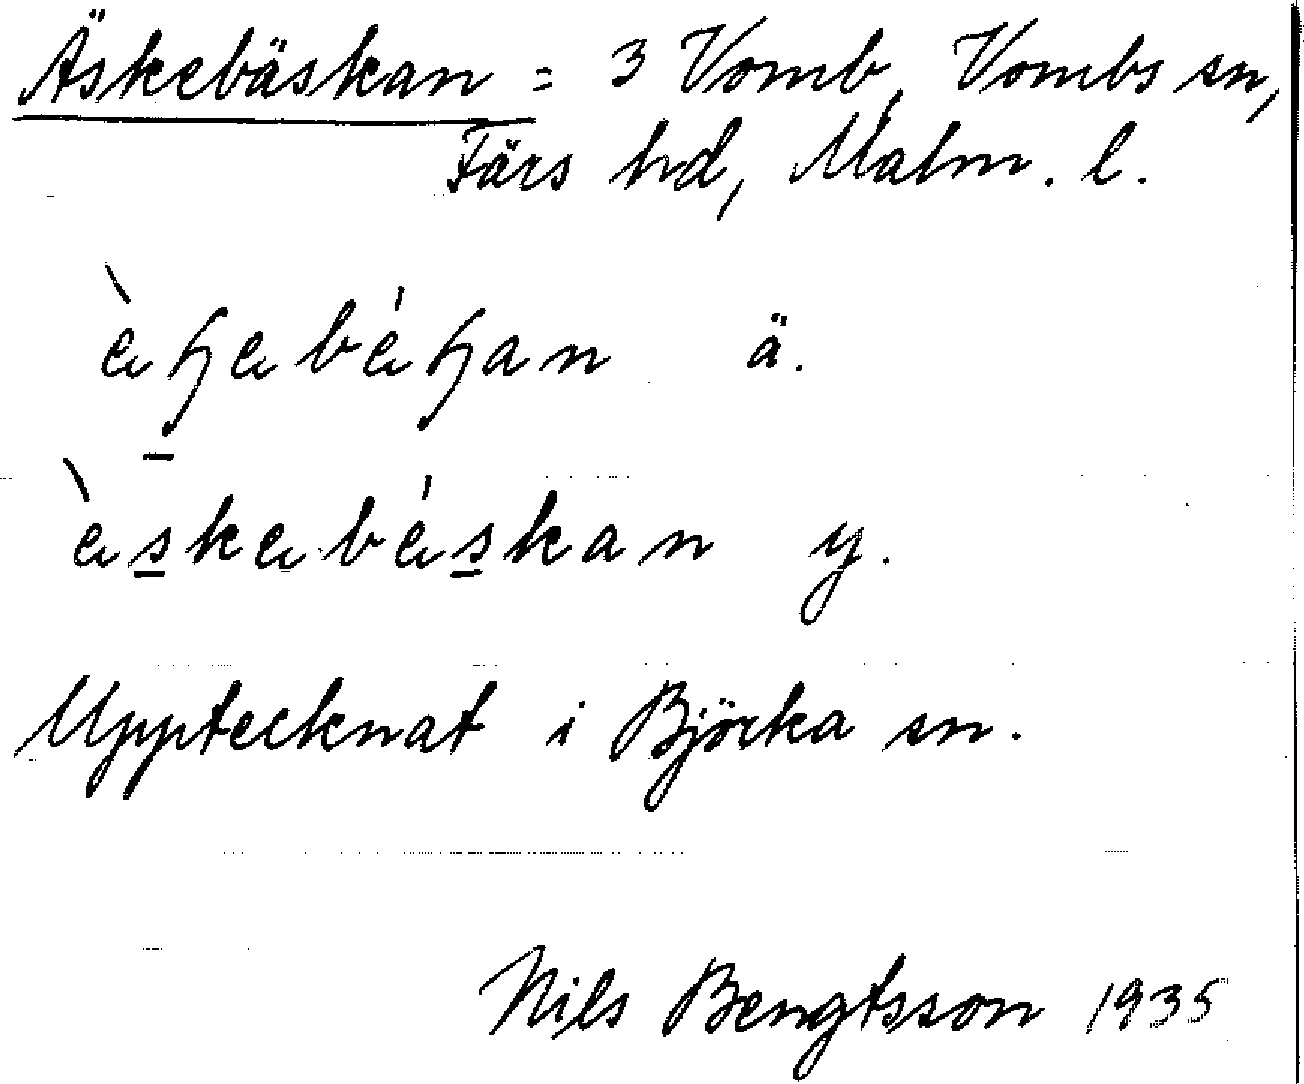 Äskebäskan = 3 Vomb, Vombs sn,
Färs hd, Malm. l.
ä.
y.
Upptecknat i Björka sn.
Nils Bengtsson 1935